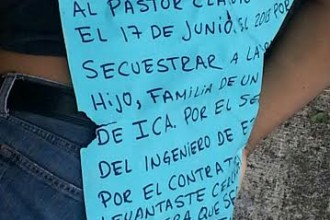 AL PASTOR
EL 17 DE JUNIO DEL 2018 POR
SECUESTRAR A LA
HIJO, FAMILIA DE UN
DE ICA. POR EL SE
DEL INGENIERO DE ES
POR EL CONTRAT
LEVANTASTE
QUE SE